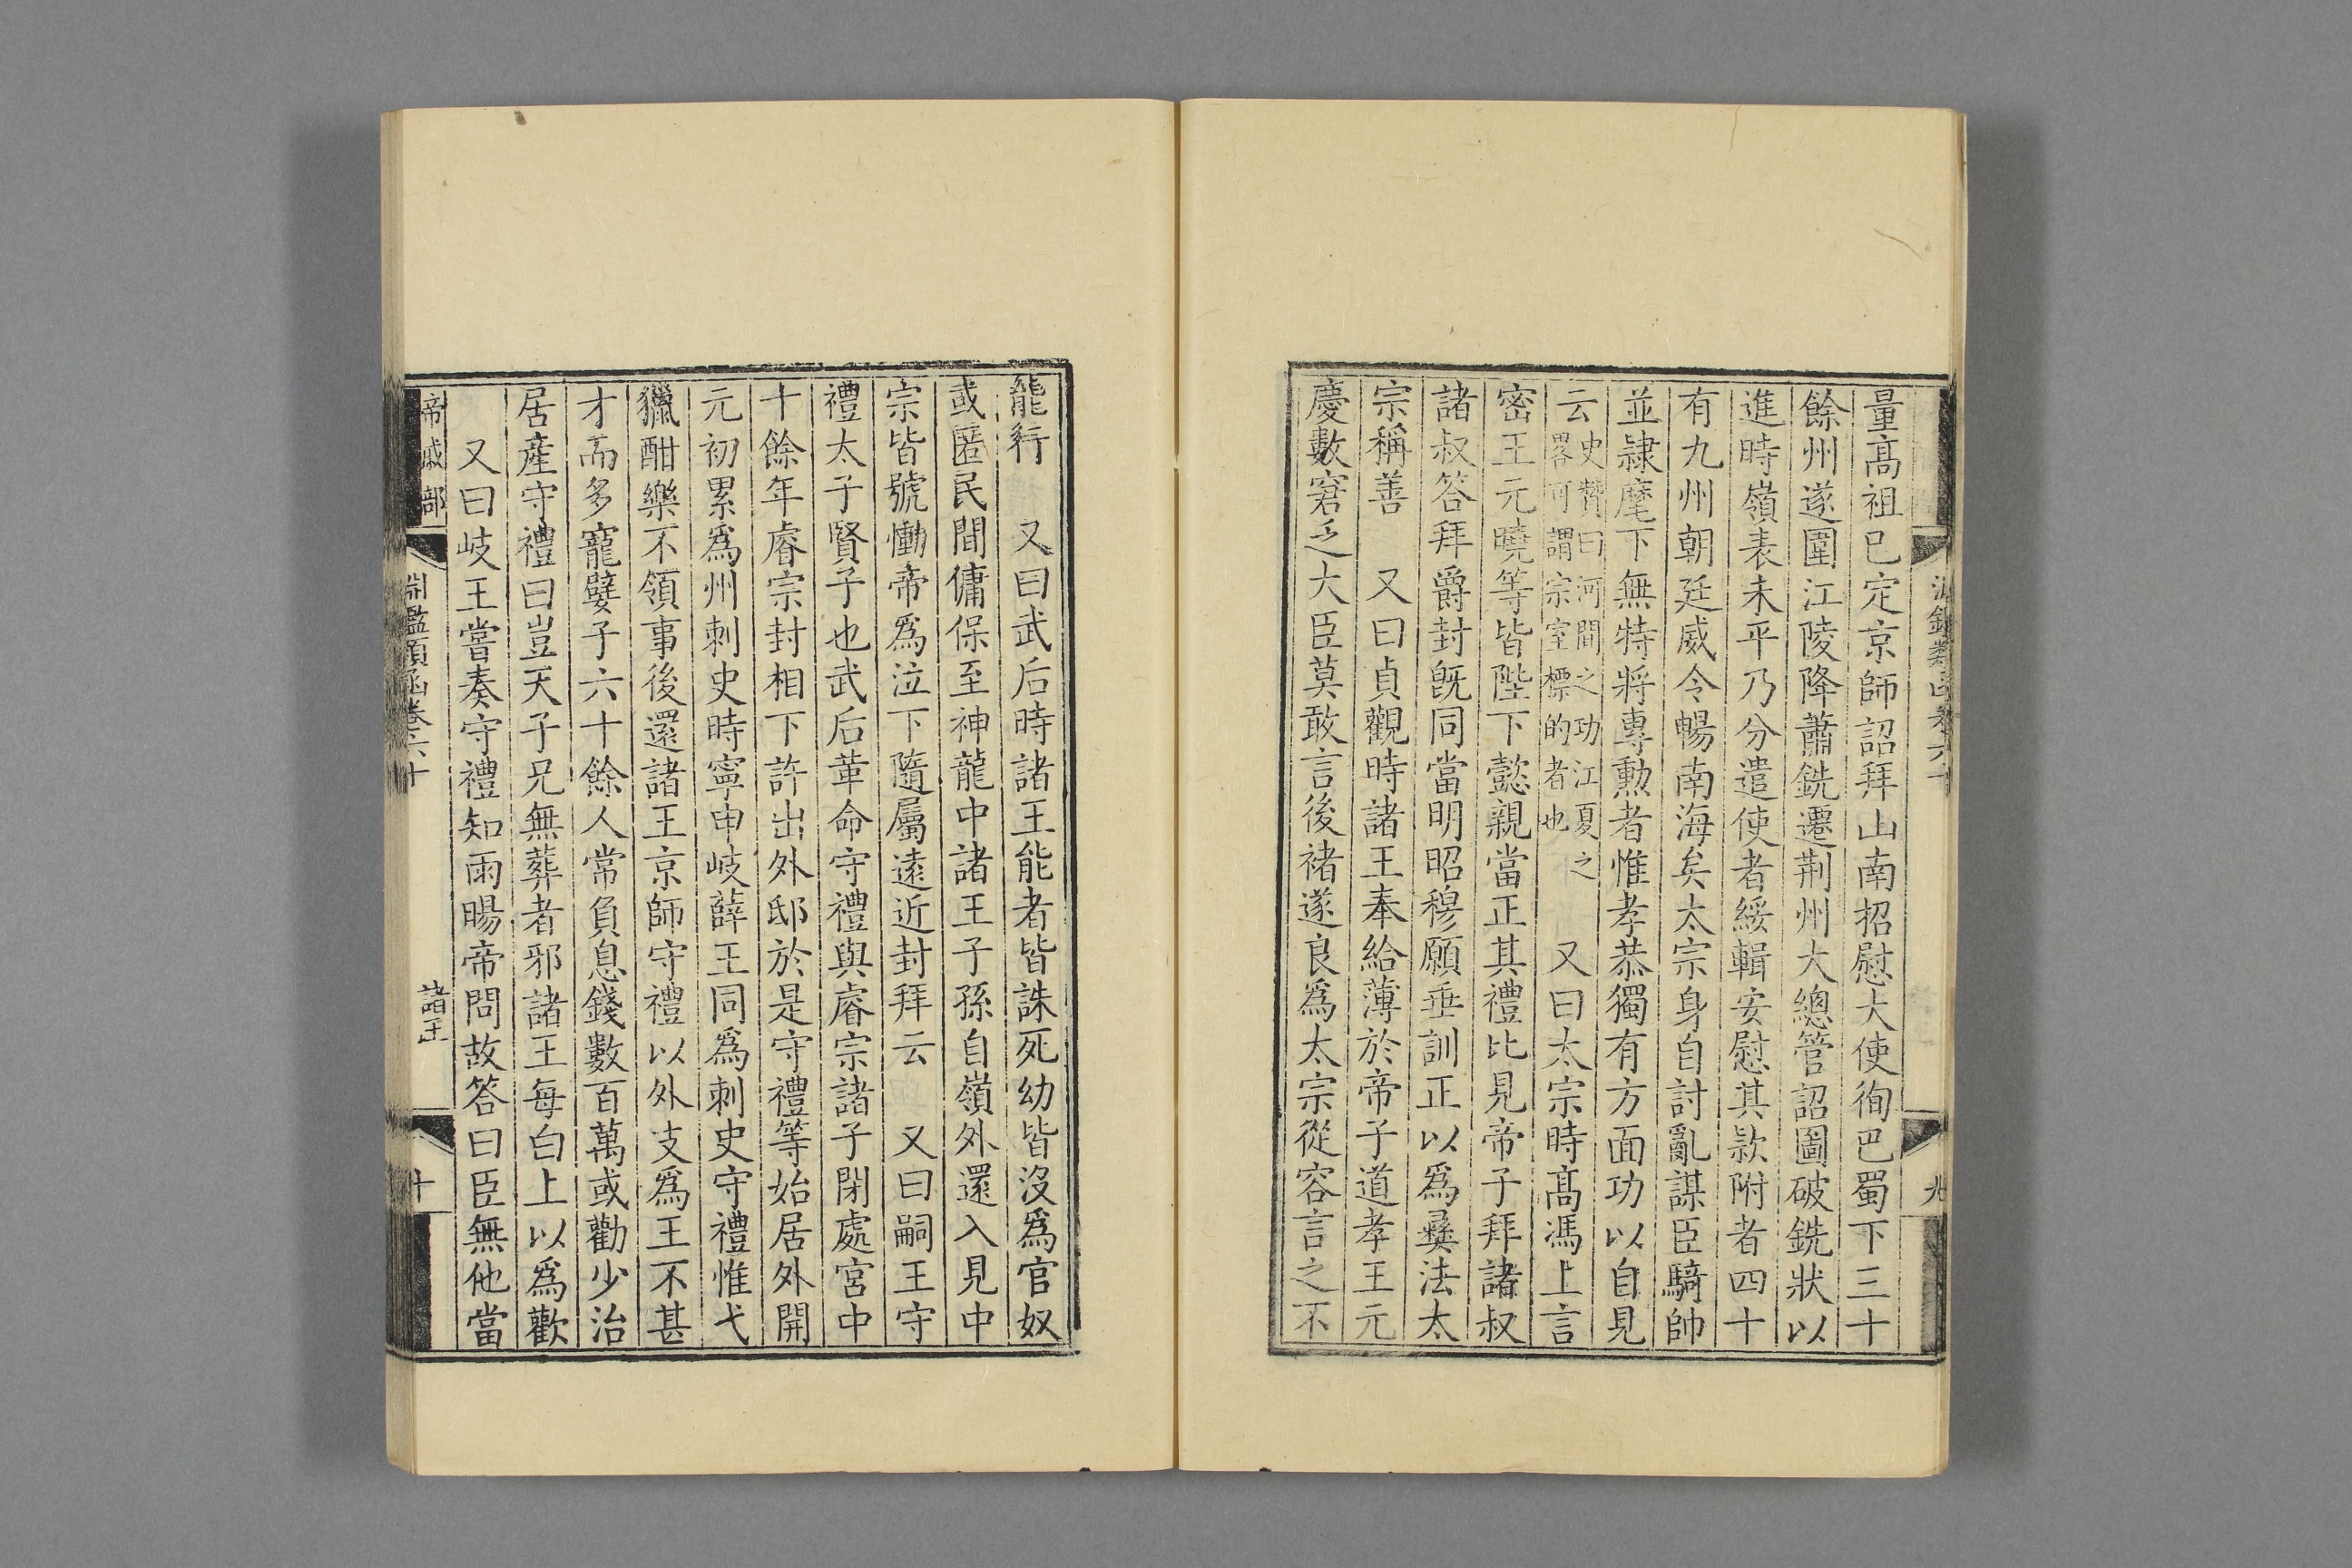 量髙祖已定京師詔拜山南招慰大使徇巴蜀下三十
餘州遂圍江陵降蕭銑遷荆州大總管詔圖破銑狀以
進時嶺表未平乃分遣使者綏輯安慰其款附者四十
有九州朝廷威令暢南海矣太宗身自討亂謀臣騎帥
並隷麾下無特將專勲者惟孝恭獨有方面功以自見
云史贊曰河間之功江夏之畧可謂宗室標的者也 又曰太宗時髙馮上言
密王元曉等皆陛下懿親當正其禮比見帝子拜諸叔
諸叔答拜爵封既同當明昭穆願垂訓正以爲彞法太
宗稱善 又曰貞觀時諸王奉給薄於帝子道孝王元
慶數窘乏大臣莫敢言後褚遂良爲太宗從容言之不
能行 又曰武后時諸王能者皆誅死幼皆沒爲官奴
或匿民間傭保至神龍中諸王子孫自嶺外還入見中
宗皆號慟帝爲泣下隨屬遠近封拜云 又曰嗣王守
禮太子賢子也武后革命守禮與睿宗諸子閉處宮中
十餘年睿宗封相下許出外邸於是守禮等始居外開
元初累爲州刺史時寧申岐薛王同爲刺史守禮惟弋
獵酣樂不領事後還諸王京師守禮以外支爲王不甚
才而多寵嬖子六十餘人常負息錢數百萬或勸少治
居產守禮曰豈天子兄無葬者邪諸王每白上以爲歡
又曰岐王嘗奏守禮知雨暘帝問故答曰臣無他當
帝戚部
淵鑑類函卷六十
諸王
十